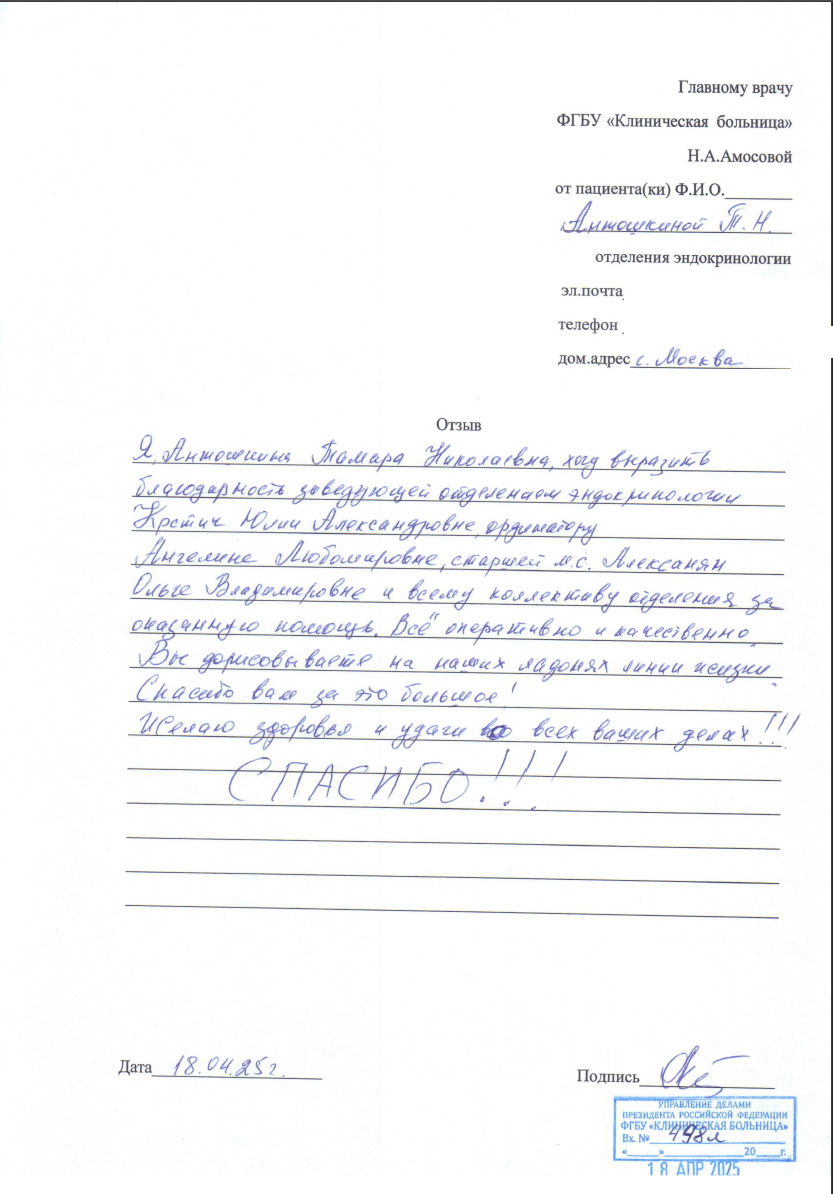 Главному врачу
ФГБУ «Клиническая больница»
Н.А.Амосовой
от пациента(ки) Ф.И.О.
Антошкиной Т.Н.
отделения эндокринологии
эл.почта
телефон
дом.адрес г. Москва
Отзыв
Я, Антошкина Тамара Николаевна, хочу выразить
благодарность заведующей отделением эндокринологии
Крстич Юлии Александровне, ординатору
Ангелине Любомировне, старшей м.с. Алексанян
Ольге Владимировне и всему коллективу отделения за
оказанную помощь. Всё оперативно и качественно.
Вы дорисовываете на наших ладонях линии жизни.
Спасибо вам за это большое!
Желаю здоровья и удачи во всех ваших делах!!!
СПАСИБО!!!
Дата 18.04.25г.
Подпись
УПРАВЛЕНИЕ ДЕЛАМИ
ПРЕЗИДЕНТА РОССИЙСКОЙ ФЕДЕРАЦИИ
ФГБУ «КЛИНИЧЕСКАЯ БОЛЬНИЦА»
Вх. № 498л
« » 20 г.
18 АПР 2025